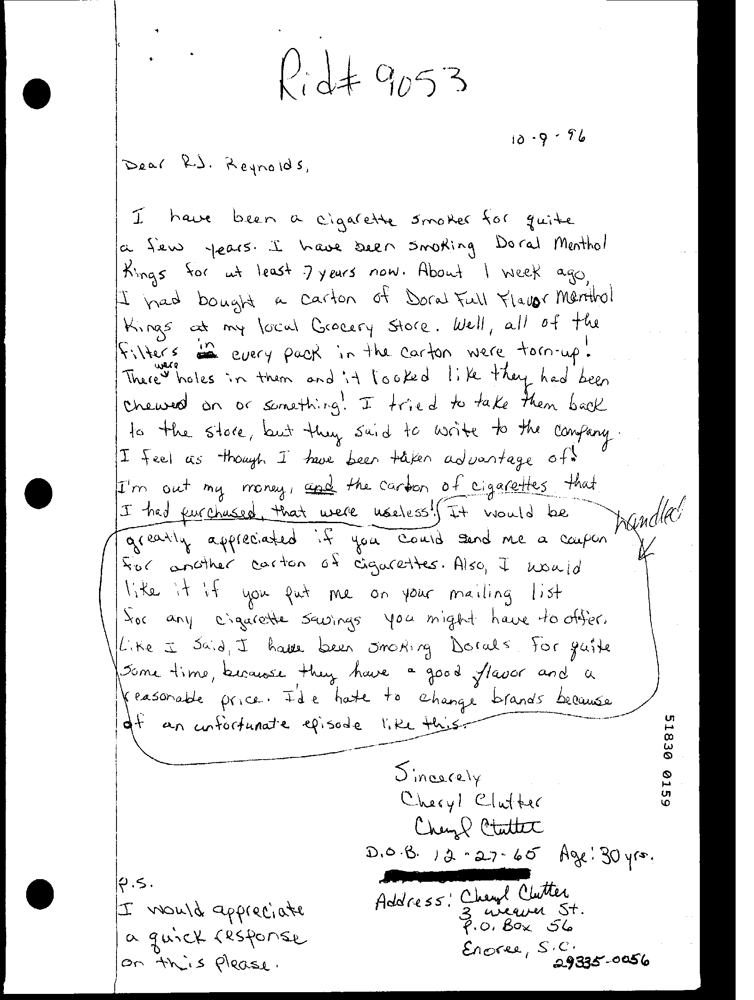 Rid# 9053
10-9-96
Dear R.J. Reynolds,
I have been a cigarette smoker for quite
a few years. I have been smoking Doral Menthol
Kings for at least 7 years now. About 1 week ago,
I had bought a carton of Doral Full Flavor Menthol
Kings at my local Grocery Store. Well, all of the
filters in every pack in the carton were torn-up!
There were holes in them and it looked like they had been
chewed on or something! I tried to take them back
to the store, but they said to write to the company.
I feel as though I have been taken advantage of!
I'm out my money, and the carton of cigarettes that
I had purchased, that were useless! It would be
handled
greatly appreciated if you could send me a coupon
for another carton of cigarettes. Also, I would
like it if you put me on your mailing list
for any cigarette savings you might have to offer.
Like I said, I have been smoking Dorals for quite
some time, because they have a good flavor and a
reasonable price. I'de hate to change brands because
of an unfortunate episode like this.
51830 0159
Sincerely
Cheryl Clutter
Cheryl Clutter
D.O.B. 12-27-65 Age: 30 yrs.
Address: Cheryl Clutter
3 weaver St.
P.O. Box 56
Enoree, S.C.
29335-0056
P.S.
I would appreciate
a quick response
on this please.